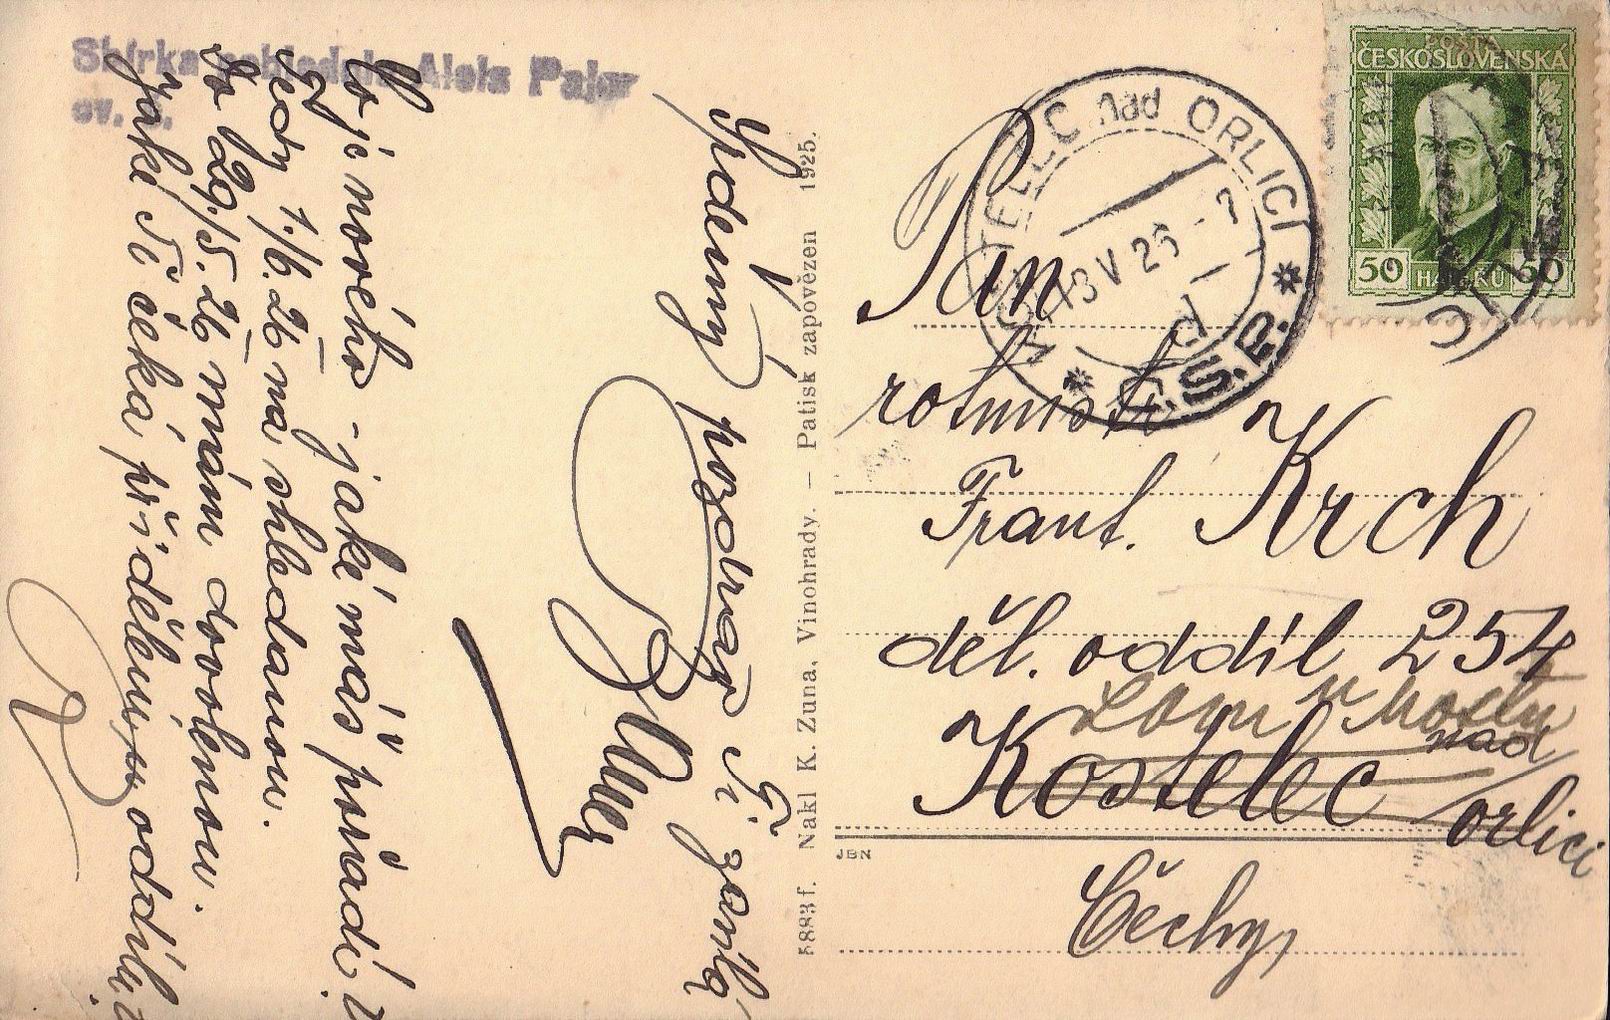 Sbírka pohledů Aleš Pajer
ev. č.
Srdečný pozdrav Ti zasílá
Co je nového - jaké máš pořadí?
Tedy 1./6. 26 na shledanou.
Do 29./5. 26 mám dovolenou.
Jaké Ti čeká přidělení u oddílu?
5883 f. Nakl K. Zuna, Vinohrady. — Patisk zapovězen 1925.
POŠTA
ČESKOSLOVENSKÁ
50 HALÉŘŮ 50
KOSTELEC nad ORLICÍ
13 V 26 - 7
d
* Č.S.R. *
Pan
rotmistr
Frant. Krch
děl. oddíl 254
Lom u Mostu
Kostelec nad
orlicí
JBN
Čechy